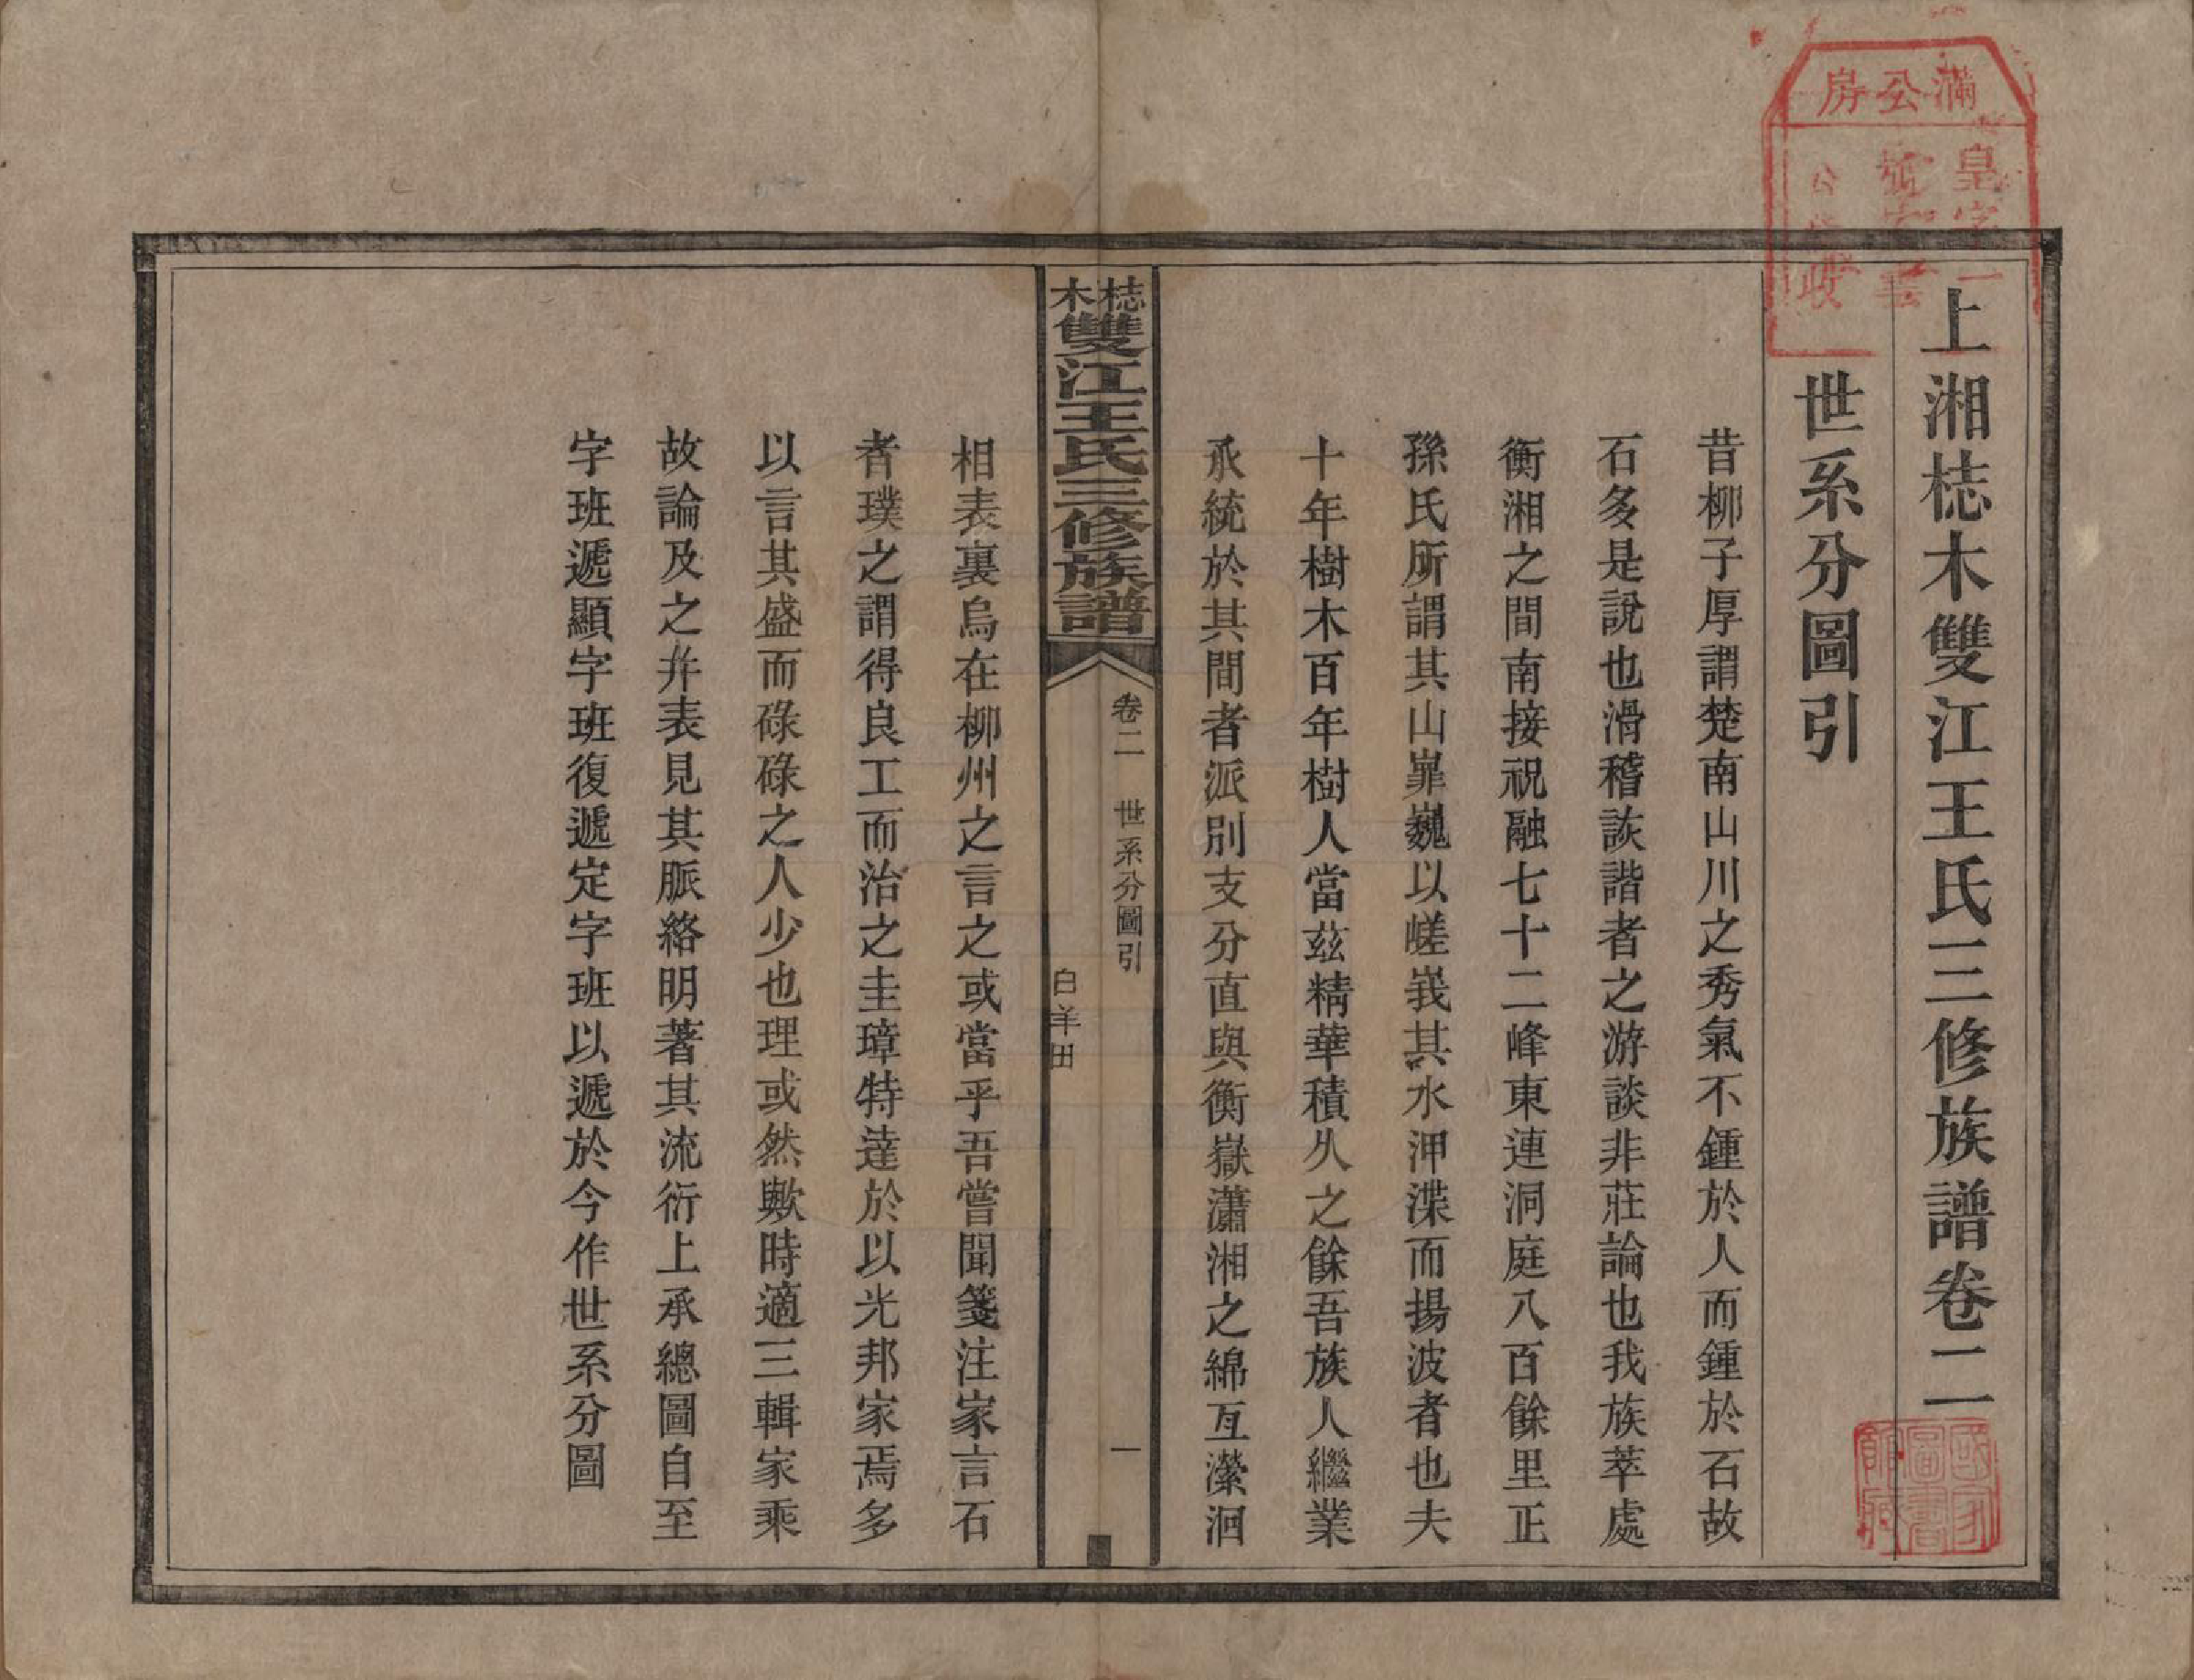 上湘梽木雙江王氏三修族譜卷二
世系分圖引
昔柳子厚謂楚南山川之秀氣不鍾於人而鍾於石故
石多是說也滑稽詼諧者之游談非莊論也我族萃處
衡湘之間南接祝融七十二峰東連洞庭八百餘里正
孫氏所謂其山嶵巍以嵯峩其水泙渫而揚波者也夫
十年樹木百年樹人當茲精華積久之餘吾族人繼業
承統於其間者派別支分直與衡嶽瀟湘之綿亙瀠洄
梽木雙江王氏三修族譜
卷二 世系分圖引
一
白羊田
相表裏烏在柳州之言之或當乎吾嘗聞箋注家言石
者璞之謂得良工而治之圭璋特達於以光邦家焉多
以言其盛而碌碌之人少也理或然歟時適三輯家乘
故論及之并表見其脈絡明著其流衍上承總圖自至
字班遞顯字班復遞定字班以遞於今作世系分圖
滿公房
皇字一
號
公
收
國家圖書館藏